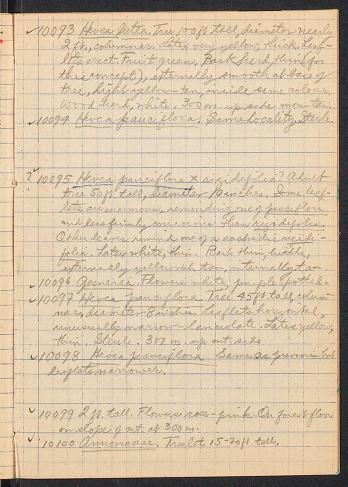 ✓10093 Hevea lutea. Tree 100 ft tall, diameter nearly
2 ft, columnar. Latex very yellow, thick. Leaf-
lets erect. Fruit green. Bark hard, thin (for
this concept), externally smooth at base of
tree, light yellow-tan, inside same colour.
Wood hard, white. 300 m. up side mountain.
✓10094 Hevea pauciflora. Same locality. Sterile.
?✓10095 Hevea pauciflora x rigidifolia? Adult
tree 50 ft. tall, diameter 10 inches. Some leaf-
lets are enormous, reminding one of pauciflora
and less firmly coriaceous than rigidifolia.
Other leaves remind one of a rigidi-
folia. Latex white, thin. Bark thin,
externally yellowish tan, internally tan
✓10096 Gesneria. Flowers white, purple spotted.
✓10097 Hevea pauciflora. Tree 45 ft tall, colum-
nar, diameter 8 inches. Leaflets horizontal,
unusually narrow-lanceolate. Latex yellow,
thin. Sterile. 300 m. up mt. side.
✓10098 Hevea pauciflora Same as previous but
leaflets narrower.
✓10099 2 ft. tall. Flowers rose-pink. On forest floor
on slope of mt. at 300 m.
✓10100 Annonaceae. Treelet 15-20 ft. tall.